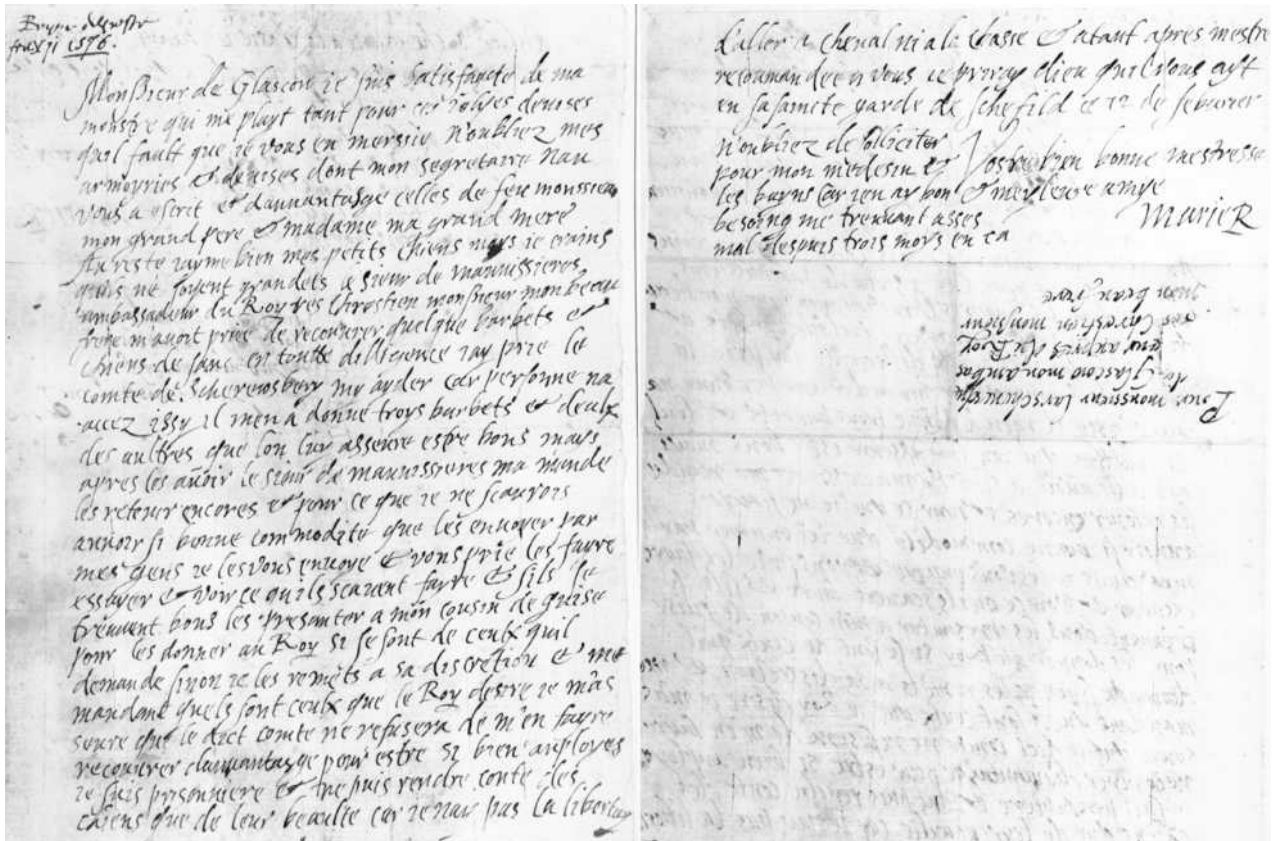 1576.
Monsieur de Glascou ie suis satisfaicte de ma
monstre qui me playt tant pour ces iolyes devises
quil fault que ie vous en mersiie n'oubliez mes
armoyries et devises dont mon segretaire Nau
vous a escrit et dauuantasge celles de feu monssieur
mon grand pere et madame ma grand mere
Au reste iayme bien mes petits chiens mays ie crains
quils ne soyent grandets le sieur de mauuissieres
ambassadeur du Roy tres Chrestien monsieur mon beau
frere m'avoit priee de recouurer quelque barbets et
chiens de sanc en toutte dilligence iay prie le
comte de Scherewsbery my ayder car personne na
accez issy il men a donne troys barbets et deulx
des aultres que lon luy asseure estre bons mays
apres les auoir le sieur de mauuissieres ma mande
les retenir encores et pour ce que ie ne scaurois
auuoir si bonne commodite que les enuoyer par
mes gens ie les vous enuoye et vous prie les fayre
essayer et voir ce quils scavent fayre et sils se
treuuent bons les presanter a mon cousin de guise
pour les donner au Roy si se sont de ceulx quil
demande sinon ie les remets a sa discretion et me
mandant quels sont ceulx que le Roy desire ie m'as
seure que le dict comte ne refusera de m'en fayre
recouurer dauuantasge pour estre si bien anployes
ie suis prisonniere et ne puis rendre conte des
chiens que de leur beaulte car ie nay pas la libertay
d'aller a cheval ni a la chasse et atant apres mestre
recommandee a vous ie priray dieu quil vous ayt
en sa saincte garde de Schefild ce 12 de febvrier
n'oubliez de soliciter
pour mon medesin et
les bayns car ien ay bon
besoing me treuuant asses
mal despuis trois moys en ca
Vostre bien bonne mestresse
et meyleure amye
Marie R
A monssieur larschevesque
de Glascou mon ambas
sadeur aupres du Roy
tres Chrestien monsieur
mon beau frere